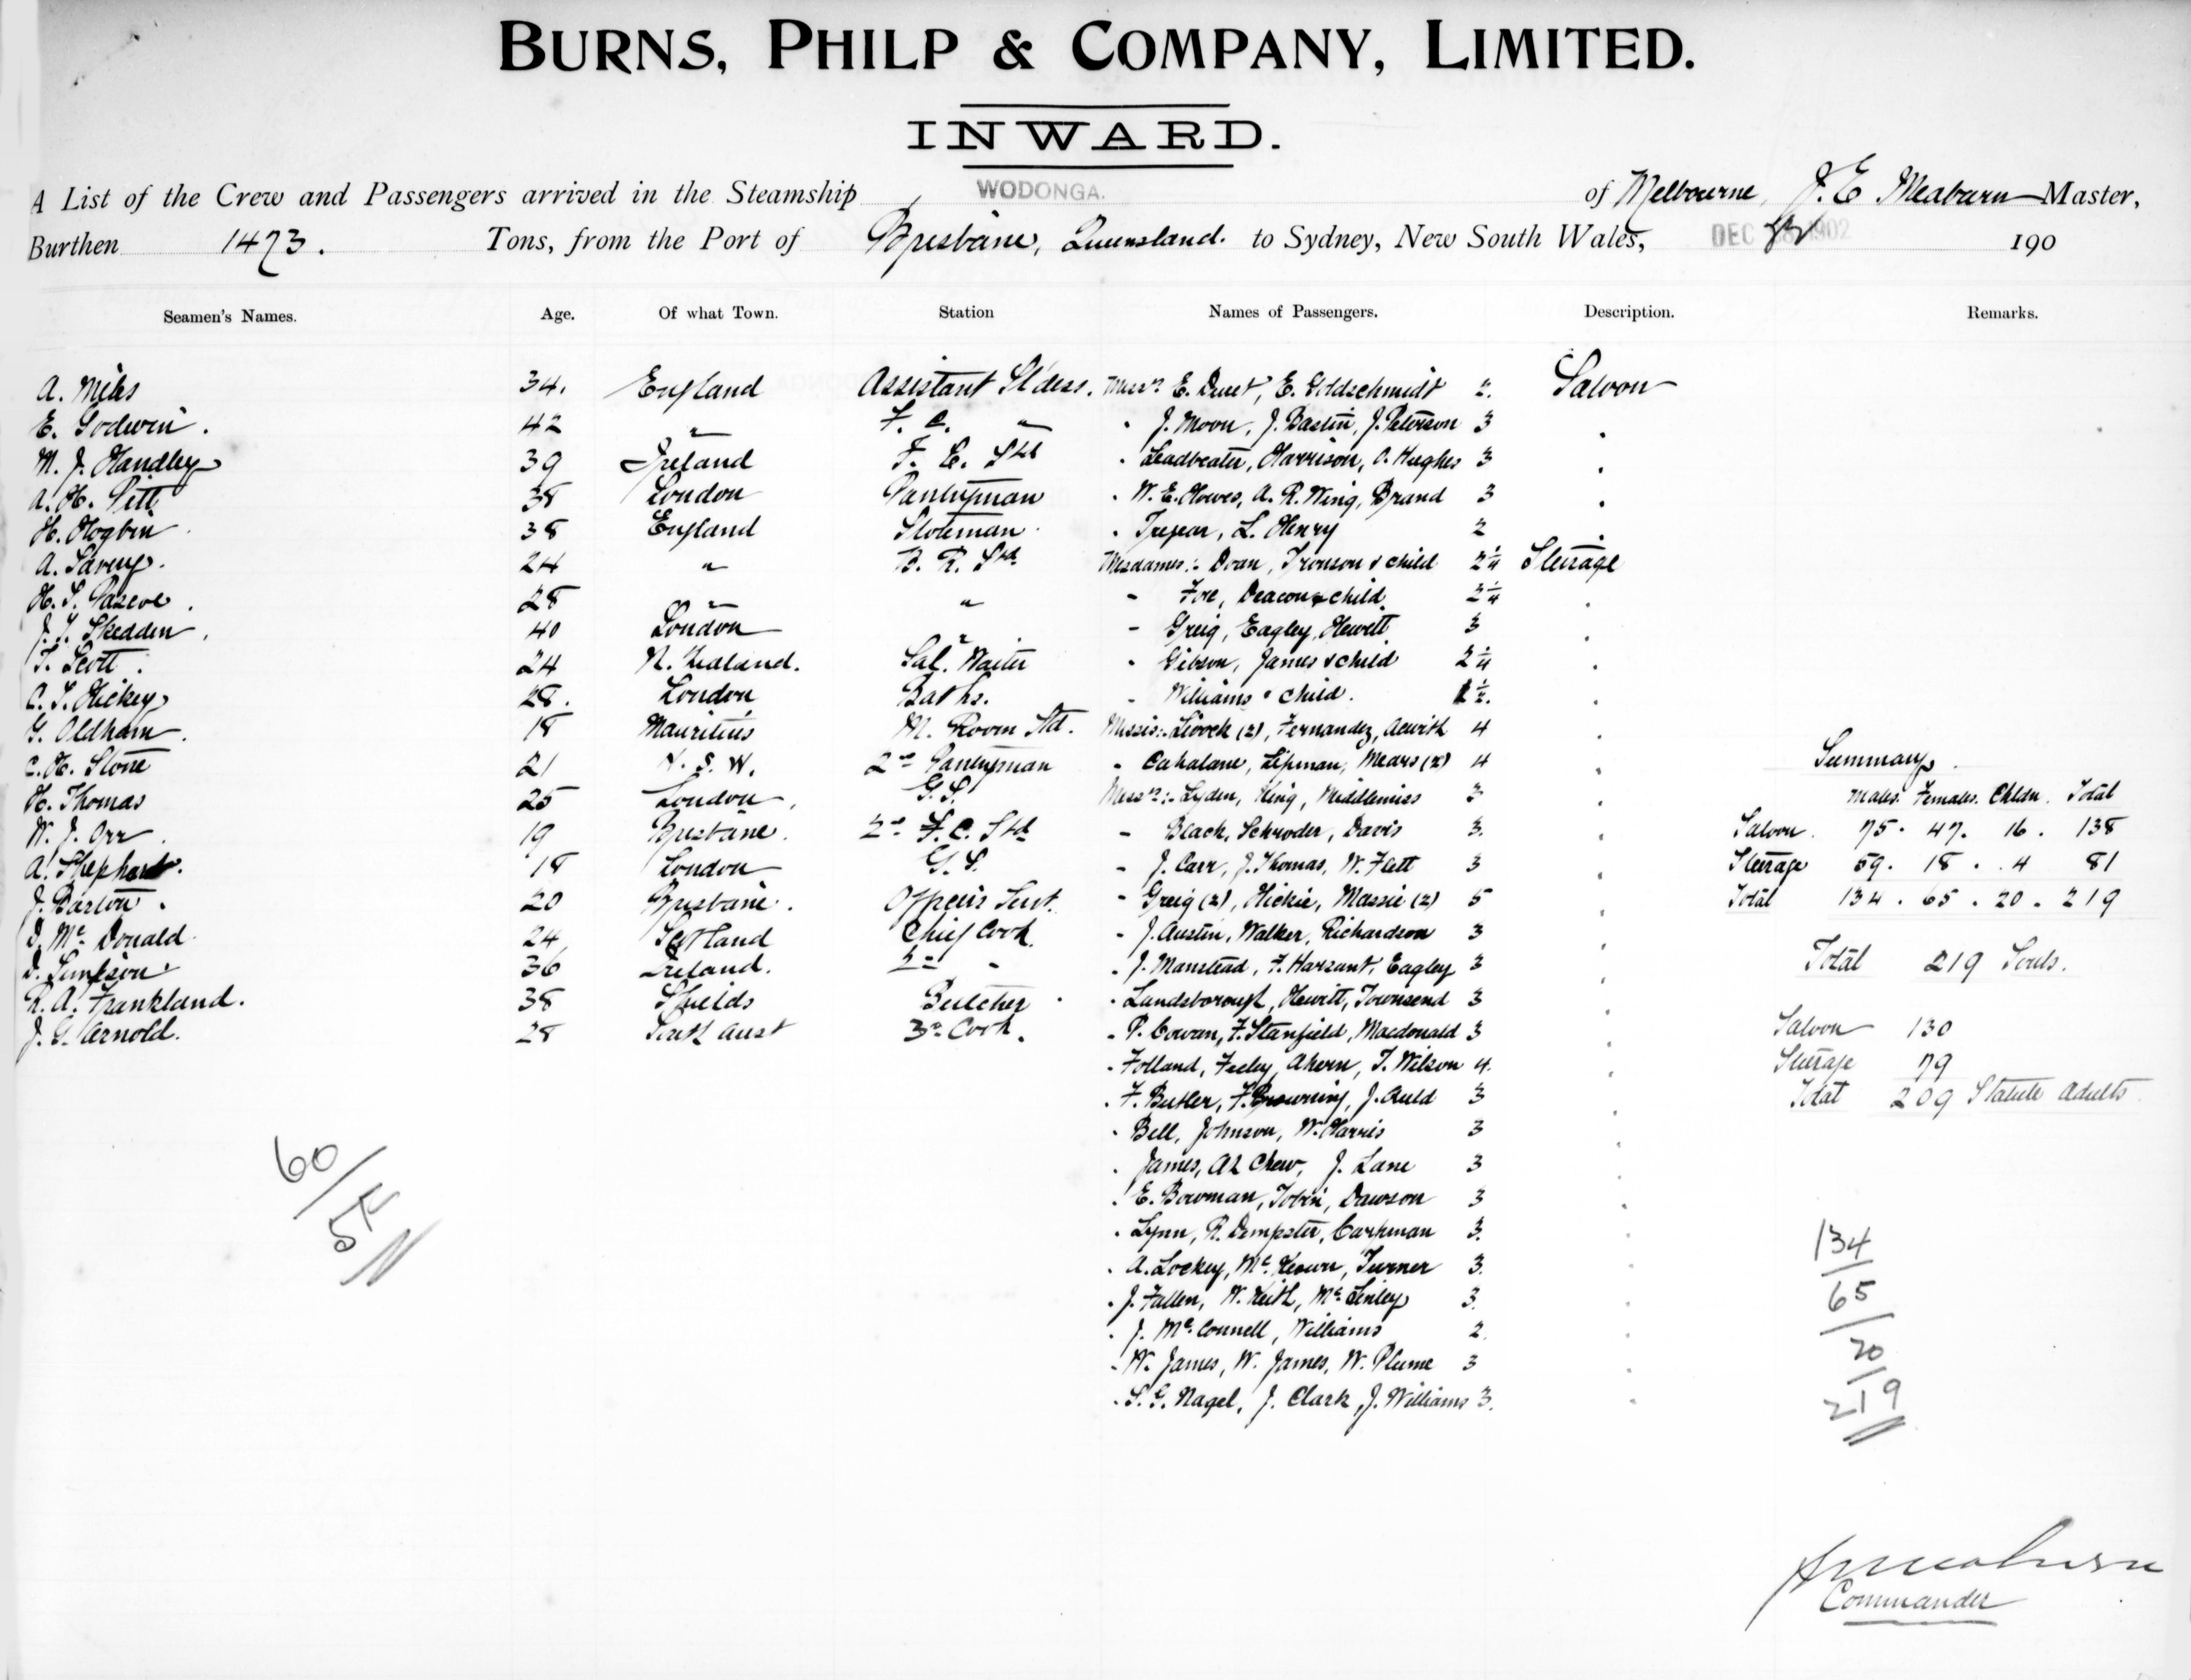 BURNS, PHILP & COMPANY, LIMITED.
INWARD.
A List of the Crew and Passengers arrived in the Steamship WODONGA. of Melbourne, J. E. Meaburn Master,
Burthen 1473. Tons, from the Port of Brisbane, Queensland. to Sydney, New South Wales, DEC 1902 190
Seamen's Names. Age. Of what Town. Station Names of Passengers. Description. Remarks.
A. Miles 34. England Assistant Stdess. Messrs E. Duret, E. Goldschmidt 2. Saloon
E. Godwin. 42 " F. C. " " J. Moon, J. Bastin, J. Peterson 3 "
M. J. Handley 39 Ireland F. C. Std " Leadbeater, Harrison, O. Hughes 3 "
A. H. Pitt 38 London Pantryman " W. E. Howes, A. R. Wing, Brand 3 "
H. Hogbin 38 England Storeman " Tregear, L. Henry 2 "
A. Savery. 24 " B. R. Std. Mesdames:- Doan, Tronson & child 2¼ Steerage
H. S. Pascoe. 28 " " " Fire, Deacon & child. 2¼ "
J. Y. Skedden. 40 London " " Greig, Eagley, Hewett 3 "
T. Scott. 24 N. Zealand. Sal. Waiter " Gibson, James & child 2¼ "
C. S. Hickey 28. London Baths. " Williams & child. 1½. "
G. Oldham. 18 Mauritius M. Room Std. Misses:- Livock (2), Fernandez, 4 "
C. H. Stone 21 N. S. W. 2nd Pantryman " Cahalane, Lipman, Mears (2) 4 "
H. Thomas 25 London. G. S. Messrs:- Lyden, King, Middlemiss 3 "
W. J. Orr. 19 Brisbane. 2nd F. C. Std " Black, Schroder, Davis 3. "
A. Shephard. 18 London G. S. " J. Carr, J. Thomas, W. Flett 3 "
J. Barton. 20 Brisbane. Officers Servt. " Greig (2), Hickie, Massie (2) 5 "
D. McDonald. 24 Scotland Chief Cook. " J. Austin, Walker, Richardson 3 "
D. Simpson. 36 Ireland. 2nd " " J. Manstead, F. Harsant, Eagley 3 "
R. A. Frankland. 38 Shields Butcher. " Landsborough, Hewitt, Townsend 3 "
J. G. Arnold. 28 South Aust 3rd Cook. " P. Cowan, F. Stanfield, Macdonald 3 "
" Folland, Feeley, Ahern, T. Wilson 4. "
" F. Butler, F. Browning, J. Auld 3 "
" Bell, Johnson, W. Harris 3 "
" James, Ah Chew, J. Lane 3 "
" E. Bowman, Tobin, Dawson 3 "
" Lynn, R. Dempster, Carkman 3. "
" A. Lockey, McKeown, Turner 3. "
" J. Fallen, W. Keith, McGinley 3. "
" J. McConnell, Williams 2. "
" W. James, W. James, W. Plume 3 "
" S. G. Nagel, J. Clark, J. Williams 3. "
Summary.
Males. Females. Chldn. Total
Saloon. 75. 47. 16. 138
Steerage 59. 18. 4 81
Total 134. 65. 20. 219
Total 219 Souls.
Saloon 130
Steerage 79
Total 209 Statute Adults
60/
134
65
20
219
J E Meaburn
Commander